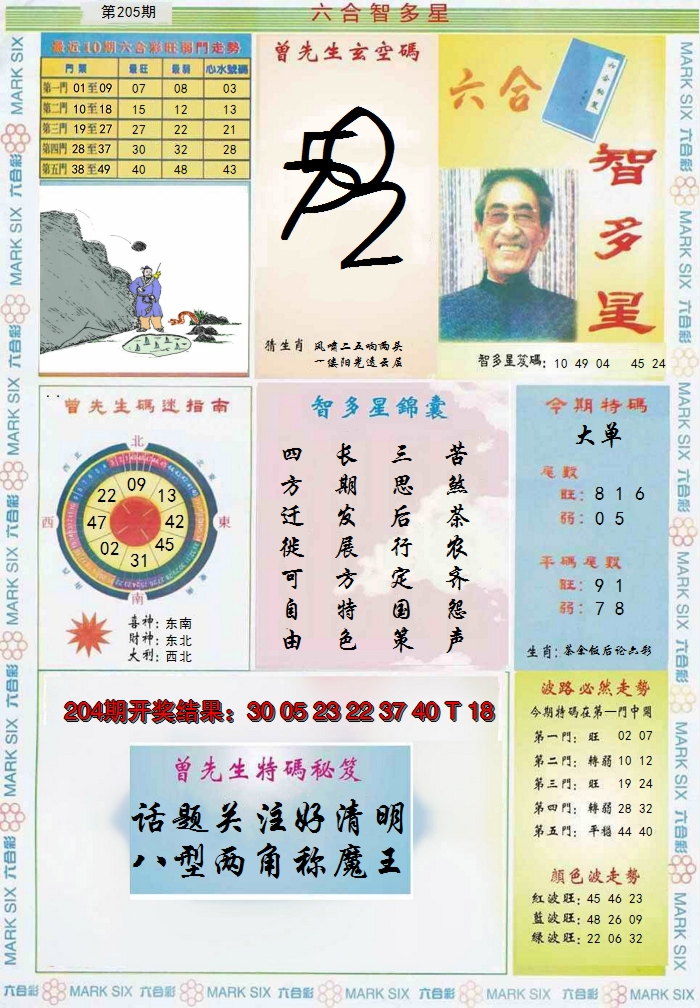 第205期
六合智多星
最近10期六合彩旺弱門走勢
門類 最旺 最弱 心水號碼
第一門 01至09 07 08 03
第二門 10至18 15 12 13
第三門 19至27 27 22 21
第四門 28至37 30 32 28
第五門 38至49 40 48 43
曾先生玄空碼
猜生肖 风喷二五响两头
一缕阳光透云层
六合
六合秘笈
智多星
智多星笈碼: 10 49 04 45 24
曾先生碼迷指南
北
西北
東北
西
東
西南
東南
南
09
13
42
45
31
02
47
22
喜神: 东南
财神: 东北
大利: 西北
智多星錦囊
苦煞茶农齐怨声
三思后行定国策
长期发展方特色
四方迁徙可自由
今期特碼
大单
尾數
旺: 8 1 6
弱: 0 5
平碼尾數
旺: 9 1
弱: 7 8
生肖: 茶余饭后论六彩
204期开奖结果: 30 05 23 22 37 40 T 18
曾先生特碼秘笈
话题关注好清明
八型两角称魔王
波路必然走势
今期特碼在第一門中開
第一門: 旺 02 07
第二門: 轉弱 10 12
第三門: 旺 19 24
第四門: 轉弱 28 32
第五門: 平穩 44 40
顔色波走势
紅波旺: 45 46 23
藍波旺: 48 26 09
綠波旺: 22 06 32
MARK SIX 六合彩